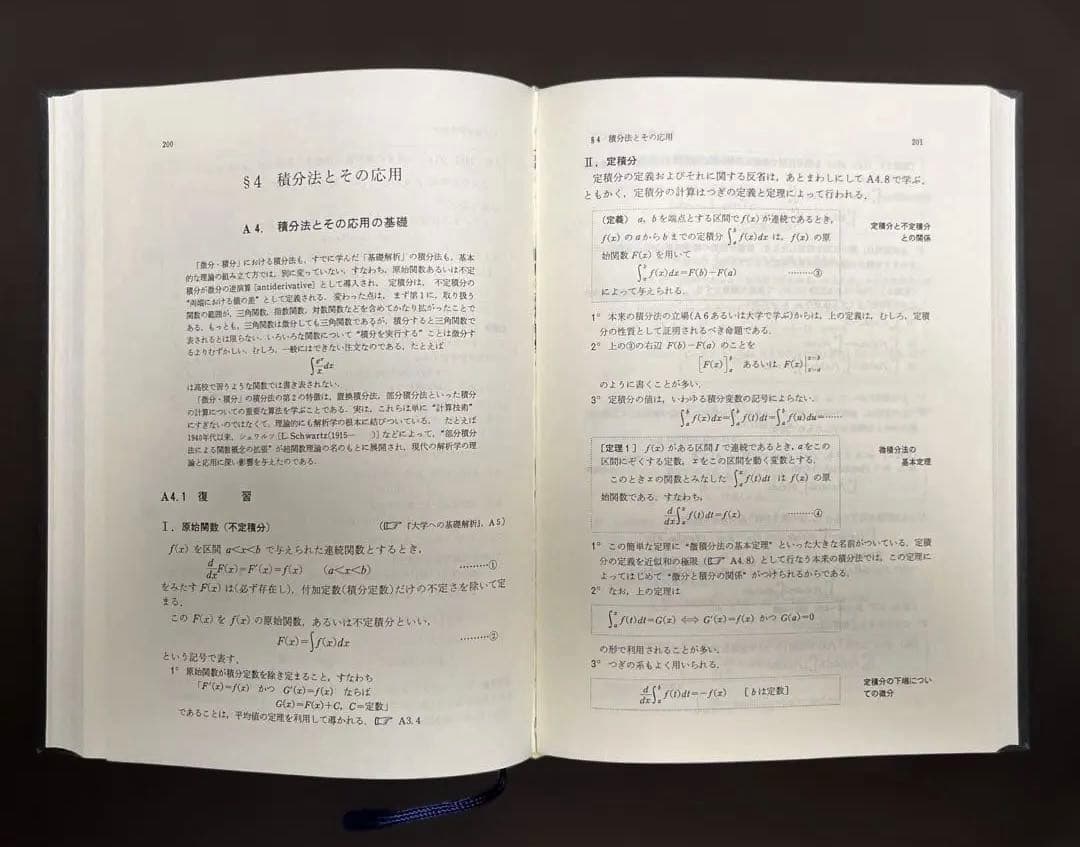 200
§4 積分法とその応用
A4. 積分法とその応用の基礎
「微分・積分」における積分法も，すでに学んだ「基礎解析」の積分法も，基本
的な理論の組み立て方では，別に変っていない．すなわち，原始関数あるいは不定
積分が微分の逆演算［antiderivative］として導入され， 定積分は， 不定積分の
“両端における値の差”として定義される．変わった点は，まず第1に，取り扱う
関数の範囲が，三角関数，指数関数，対数関数などを含めてかなり拡がったことで
ある．もっとも，三角関数は微分しても三角関数であるが，積分すると三角関数で
表されるとは限らない．いろいろな関数について“積分を実行する”ことは微分す
るよりむずかしい．むしろ，一般にはできない注文なのである．たとえば
∫e^x/x dx
は高校で習うような関数では書き表されない．
「微分・積分」の積分法の第2の特徴は，置換積分法，部分積分法といった積分
の計算についての重要な算法を学ぶことである．実は，これらは単に“計算技術”
にすぎないのではなくて，理論的にも解析学の根本に結びついている． たとえば
1940年代以来，シュワルツ［L. Schwartz(1915― )］などによって，“部分積分
法による関数概念の拡張”が超関数理論の名のもとに展開され，現代の解析学の理
論と応用に深い影響を与えたのである．
A4.1 復 習
Ⅰ．原始関数（不定積分）
（☞『大学への基礎解析』，A5）
f(x) を区間 a<x<b で与えられた連続関数とするとき，
d/dx F(x)=F′(x)=f(x) (a<x<b) ………①
をみたす F(x) は（必ず存在し），付加定数（積分定数）だけの不定さを除いて定
まる．
この F(x) を f(x) の原始関数，あるいは不定積分といい，
F(x)=∫f(x)dx ………②
という記号で表す．
1° 原始関数が積分定数を除き定まること，すなわち
「F′(x)=f(x) かつ G′(x)=f(x) ならば
G(x)=F(x)+C, C=定数」
であることは，平均値の定理を利用して導かれる．☞ A3.4
§4 積分法とその応用 201
Ⅱ．定積分
定積分の定義およびそれに関する反省は，あとまわしにして A4.8 で学ぶ．
ともかく，定積分の計算はつぎの定義と定理によって行われる．
（定義） a，b を端点とする区間で f(x) が連続であるとき，
f(x) の a から b までの定積分 ∫_a^b f(x)dx は，f(x) の原
始関数 F(x) を用いて
∫_a^b f(x)dx=F(b)−F(a) ………③
によって与えられる．
定積分と不定積分
との関係
1° 本来の積分法の立場（A6 あるいは大学で学ぶ）からは，上の定義は，むしろ，定積
分の性質として証明されるべき命題である．
2° 上の③の右辺 F(b)−F(a) のことを
[F(x)]_a^b あるいは F(x)|_{x=a}^{x=b}
のように書くことが多い．
3° 定積分の値は，いわゆる積分変数の記号によらない．
∫_a^b f(x)dx=∫_a^b f(t)dt=∫_a^b f(u)du=……
［定理1］ f(x) がある区間 I で連続であるとき，a をこの
区間にぞくする定数，x をこの区間を動く変数とする．
このとき x の関数とみなした ∫_a^x f(t)dt は f(x) の原
始関数である．すなわち，
d/dx ∫_a^x f(t)dt=f(x) ………④
微積分法の
基本定理
1° この簡単な定理に“微積分法の基本定理”といった大きな名前がついている．定積
分の定義を近似和の極限（☞ A4.8）として行なう本来の積分法では，この定理に
よってはじめて“微分と積分の関係”がつけられるからである．
2° なお，上の定理は
∫_a^x f(t)dt=G(x) ⟺ G′(x)=f(x) かつ G(a)=0
の形で利用されることが多い．
3° つぎの系もよく用いられる．
d/dx ∫_x^b f(t)dt=−f(x) ［b は定数］
定積分の下端につい
ての微分